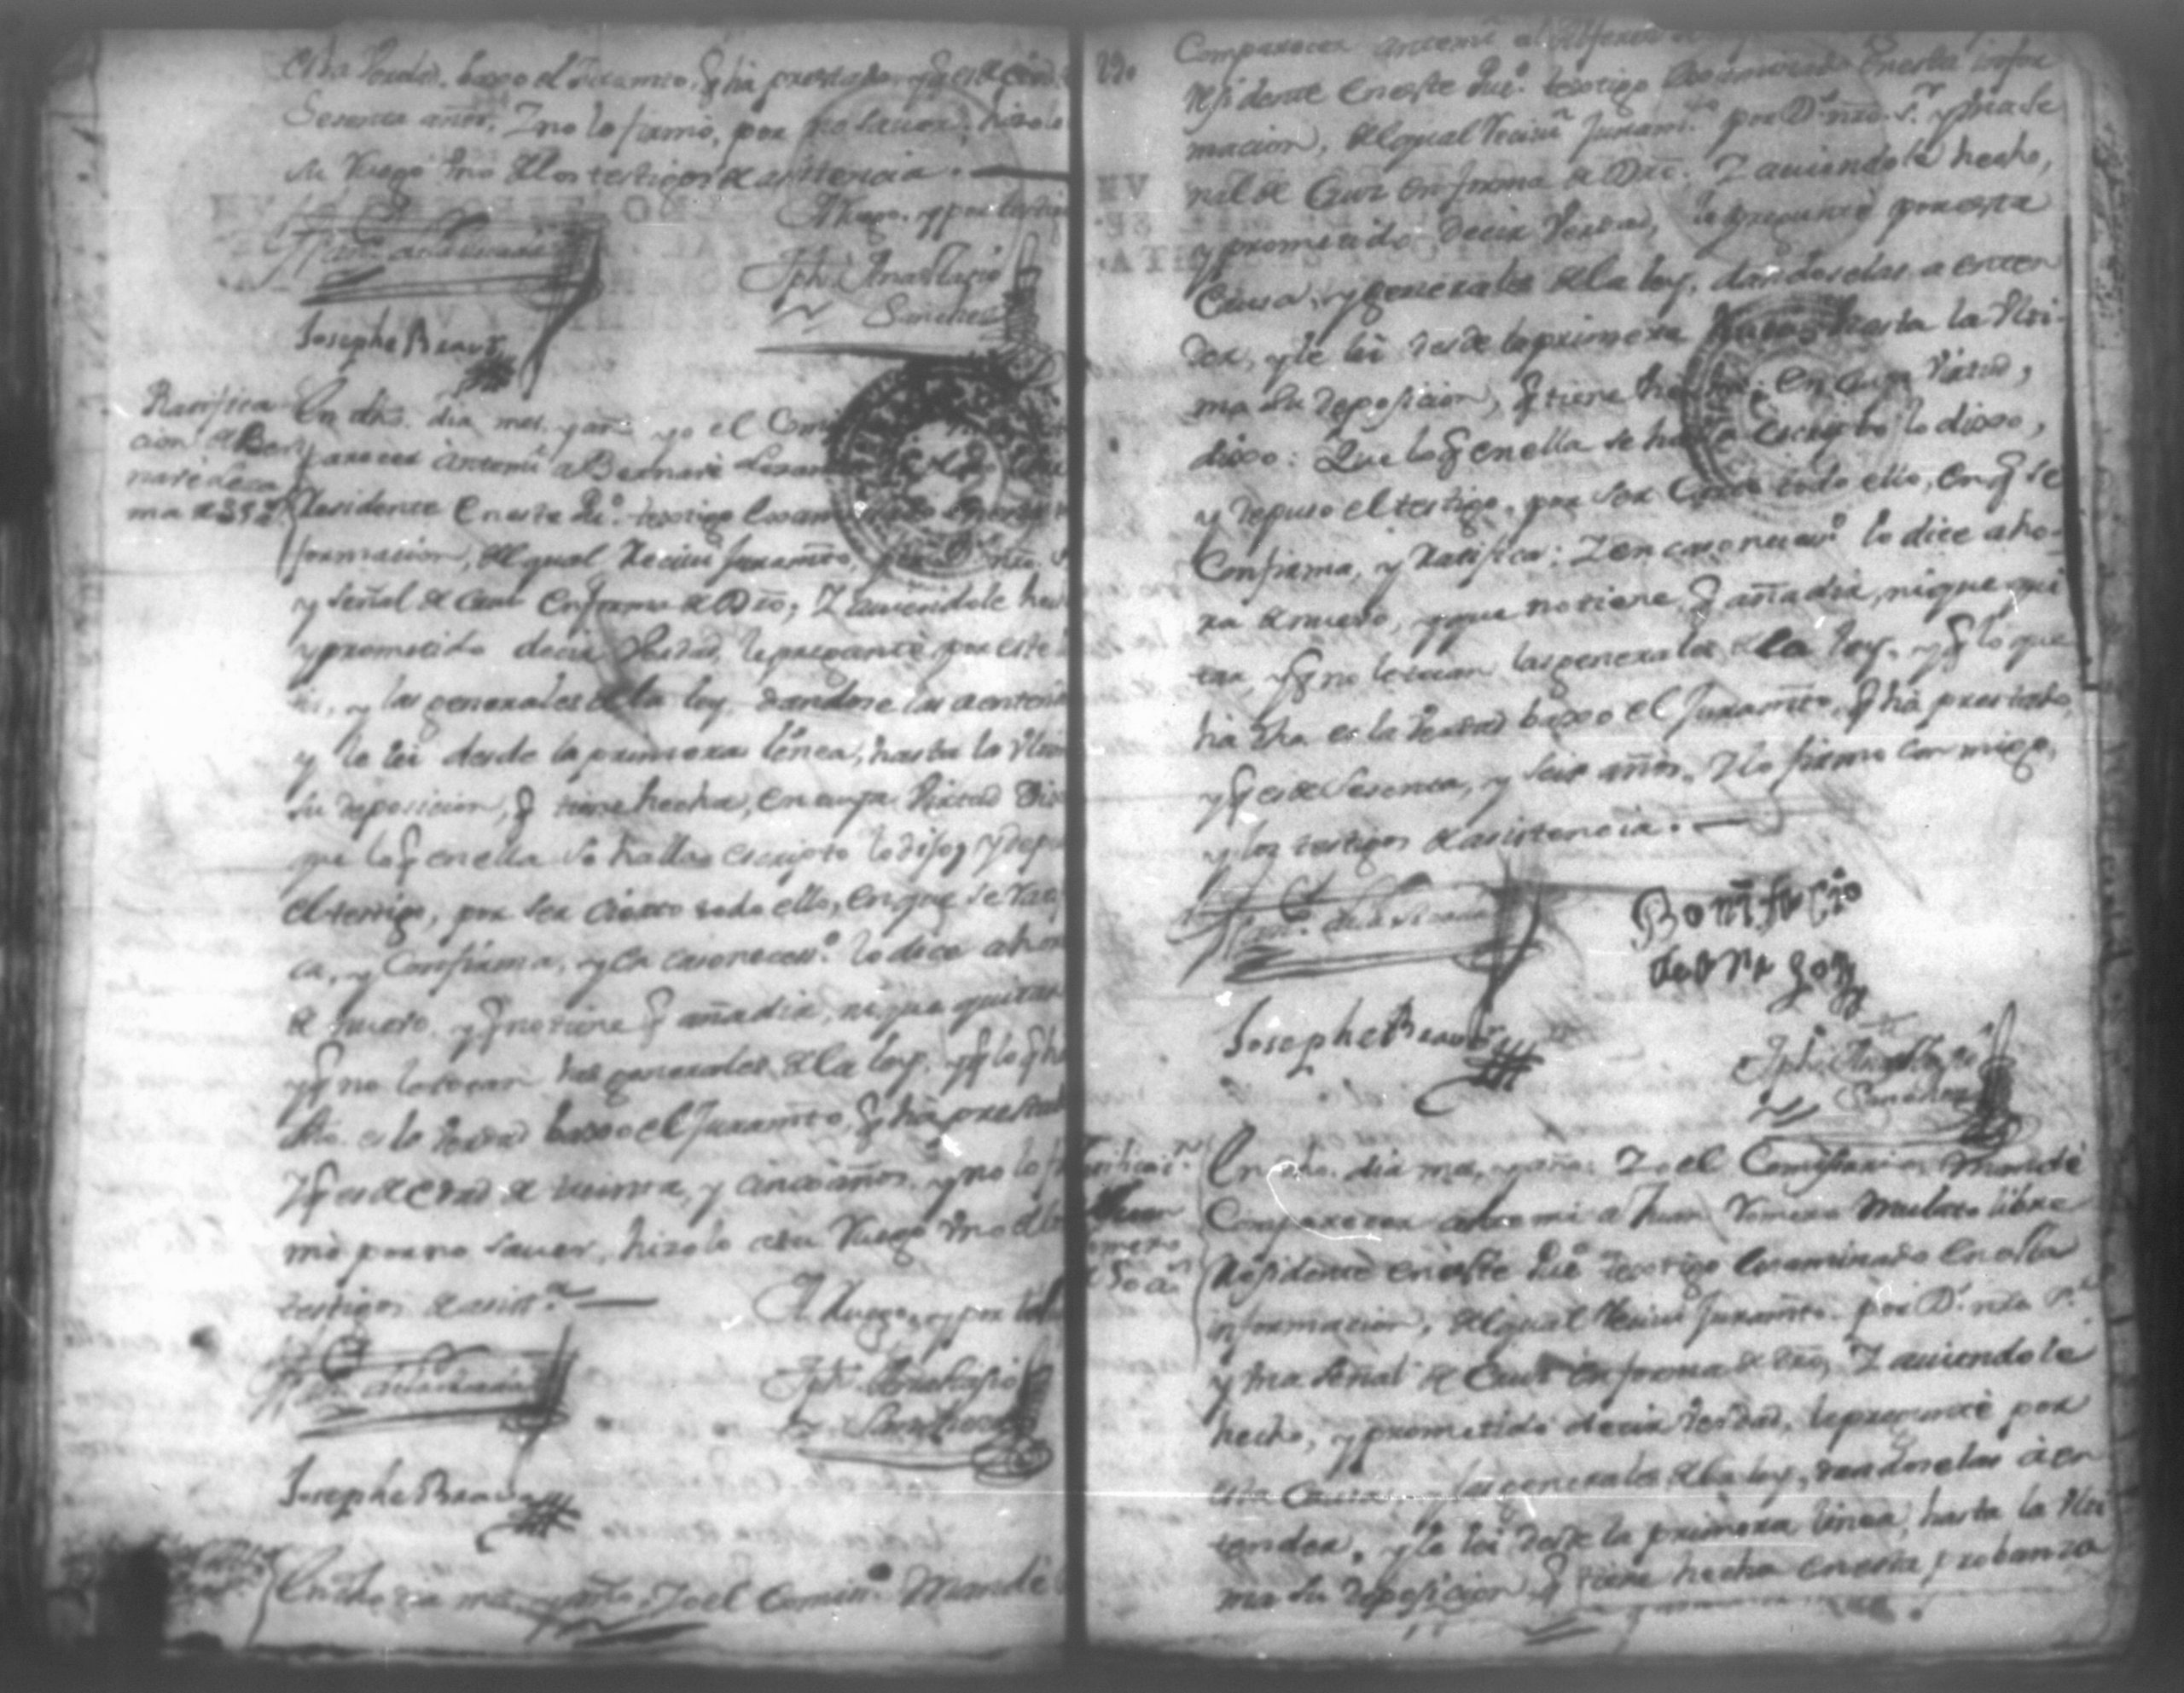 es la Verdad. baxo el Juramto. q̃ ha prestado, y q̃ es de edad
Sesenta años, Y no lo firmò, por no saver, hizolo
su Ruego Vno de los testigos de asistencia.
A Ruego, y por testigo
Jph. Anastasio
Sanchez
Josephe Bravo
Ratifica
cion de Ber
narè Leca
ma de 35 a.
En dho. dia mes, y año yo el Comi
parecer antemi a Bernarè
Residente en este Pu.º testigo
formacion, del qual Recivi Juramto.
y señal de Cruz en forma de Dro; Y aviendole hecho
y prometido decir Verdad, le preguntè por esta
y las generales de la ley, dandose las a enten
y le lei desde la primera linea, hasta la Vltima
su deposicion, q̃ tiene hecha, en cuya Virtud Dixo
que lo q̃ en ella se halla escripto lo dijo, y depuso
el testigo, por ser cierto todo ello, en que se Ratifi
ca, y Confirma, y en caso neces.º lo dice ahora
de nuevo, y q̃ no tiene q̃ añadir, ni que quitar
y q̃ no le tocan las generales de la ley, y q̃ lo q̃ ha
dho. es la Verdad baxo el Juramto, q̃ ha prestado
Y q̃ es de edad de treinta, y cinco años, y no lo fir
mò por no saver, hizolo a su Ruego Vno de los
testigos de asist.ª
A Ruego, y por testigo
Jph. Anastasio
Sanchez
Josephe Bravo
En dho dia mes, y año: Yo el Comiss.º Mandè
Comparecer antemi al Alferez
Residente en este Pu.º testigo examinado en esta infor
macion, del qual Recivi Juram.to por D.s nro. S.r y señal
de Cruz en forma de Dro. Y aviendolo hecho,
y prometido decir Verdad, le preguntè por esta
Causa, y generales de la ley, dandoselas a enten
der, y le lei desde la primera linea hasta la Vlti-
ma su deposicion, q̃ tiene hecha: en cuya Virtud,
dixo: Que lo q̃ en ella se halla escripto lo dixo,
y depuso el testigo, por ser Cierto todo ello, en q̃ se
Confirma, y Ratifica: Y en caso neces.º lo dice aho-
ra de nuevo, y que no tiene, q̃ añadir, ni que qui
tar, y q̃ no le tocan las generales de la ley, y q̃ lo que
ha dho es la Verdad baxo el Juramto, q̃ ha prestado,
y q̃ es de sesenta, y seis años, Y lo firmo con migo,
y los testigos de asistencia.
Bonifacio
Josephe Bravo
Jph. Anastasio
Sanchez
Ratificaci.n
de Juan
Romero
de 50 a.s
En dho. dia mes, y año: Yo el Comissario Mandè
Comparecer ante mi a Juan Romero Mulato libre
Residente en este Pu.º testigo examinado en esta
informacion, del qual Recivi Juramto. por D.s nro S.r
y Vna señal de Cruz en forma de dro, Y aviendolo
hecho, y prometido decir Verdad, le preguntè por
esta Causa, y las generales de la ley, dandoselas à en
tender, y le lei desde la primera linea, hasta la Vlti
ma su deposicion q̃ tiene hecha en esta probanza